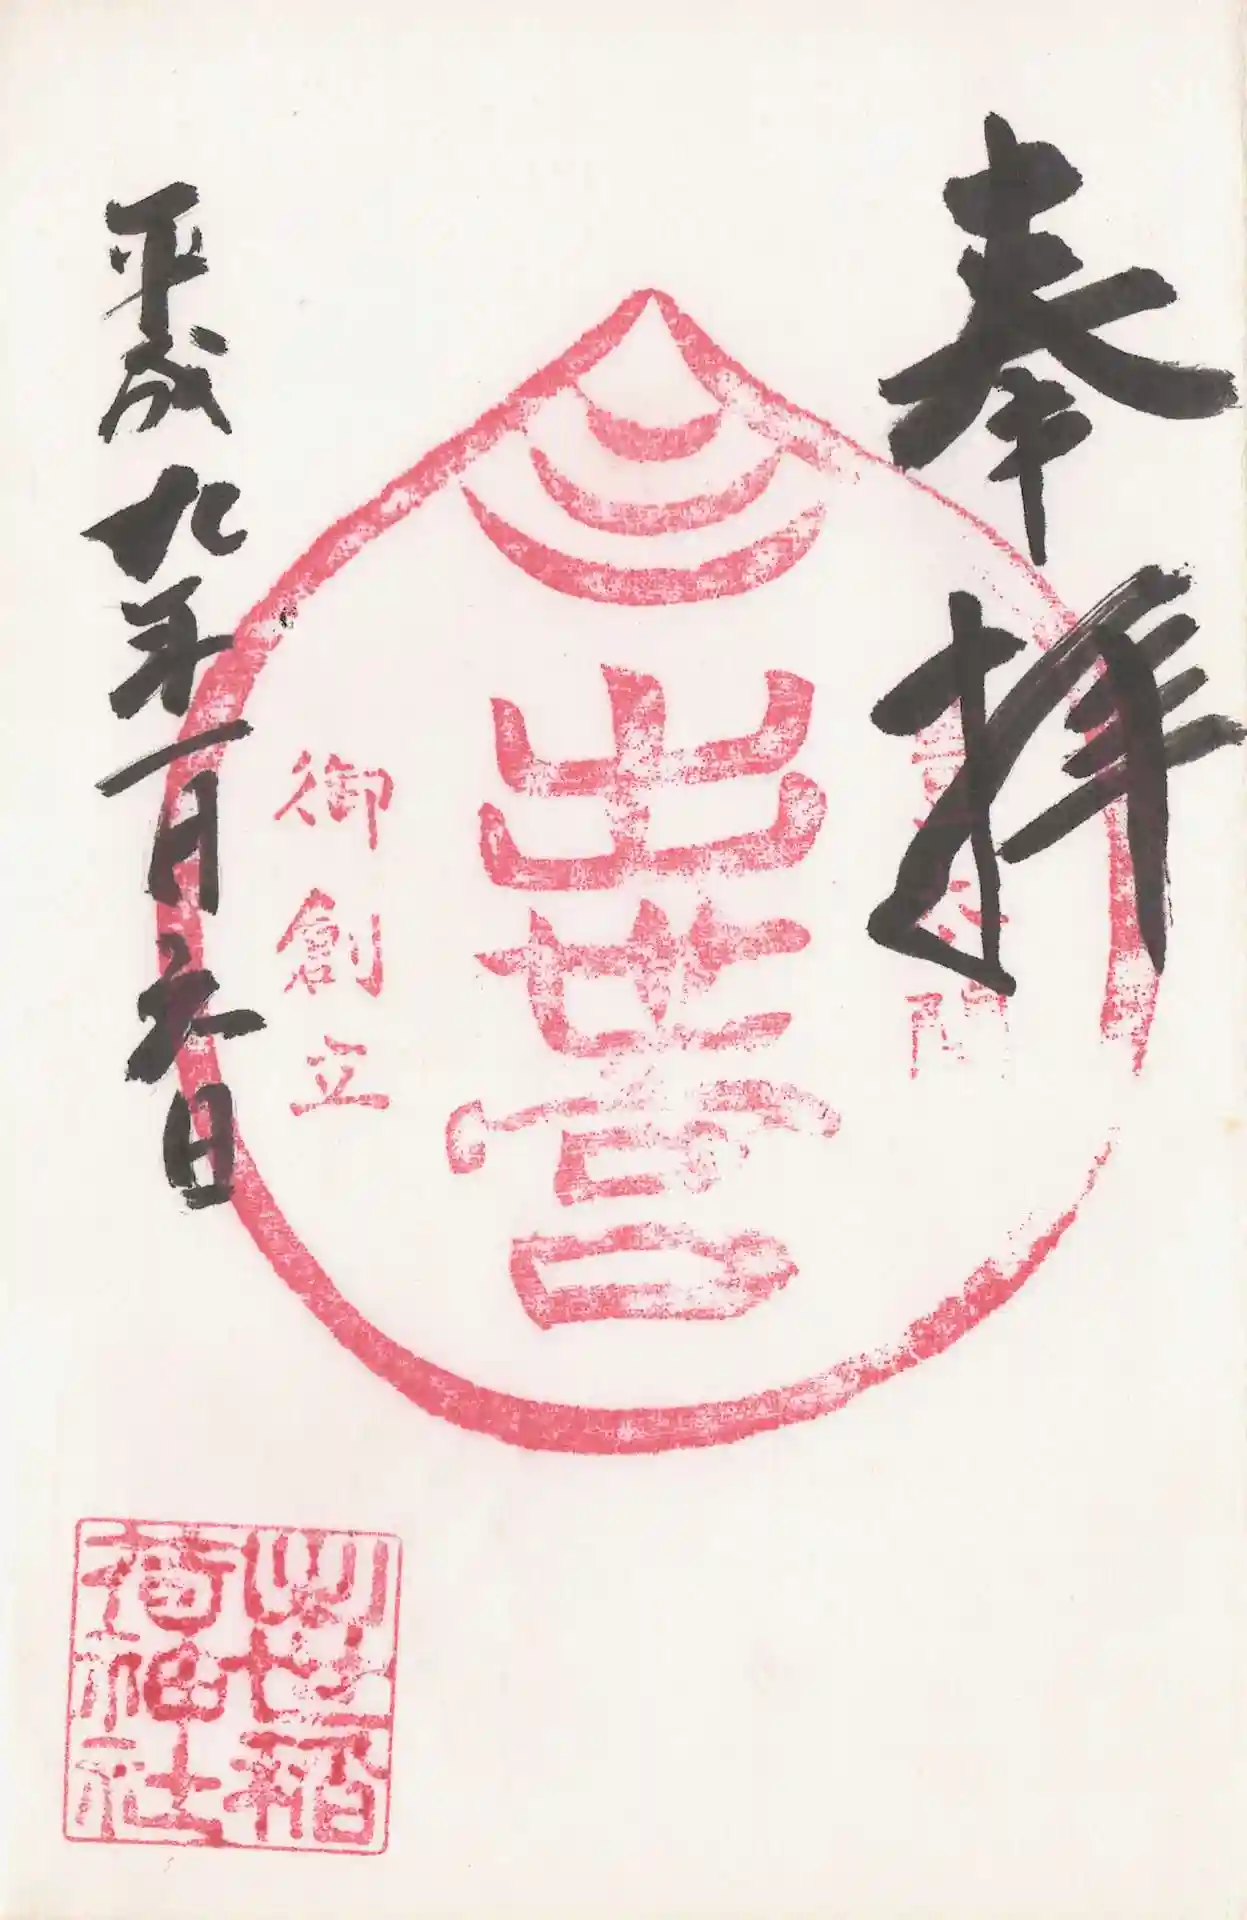 奉拝
出世宮
御創立
平成九年一月六日
出世稲
荷神社